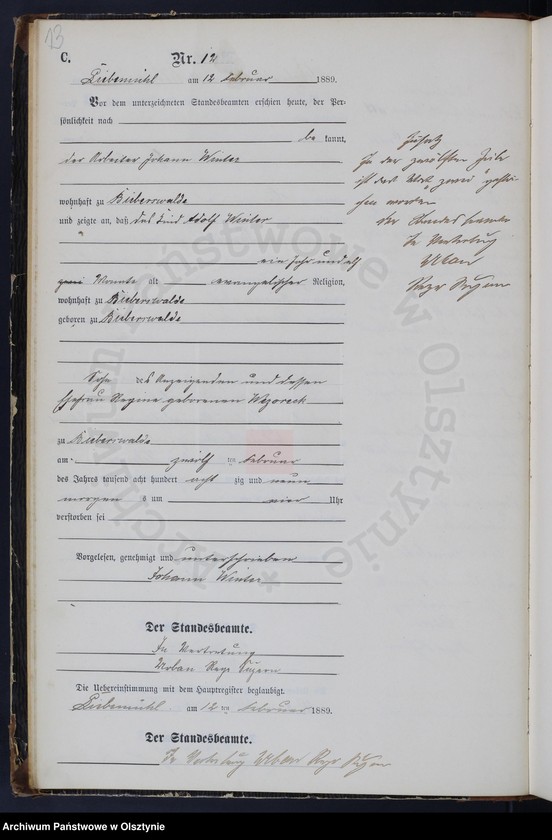 13
C.
Nr. 12
Liebemühl am 12 Februar 1889.
Vor dem unterzeichneten Standesbeamten erschien heute, der Per-
sönlichkeit nach
be kannt,
der Arbeiter Johann Winter
wohnhaft zu Bieberswalde
und zeigte an, daß das Kind Adolf Winter
ein Jahr und elf
Monate alt evangelischer Religion,
wohnhaft zu Bieberswalde
geboren zu Bieberswalde
Sohn des Anzeigenden und dessen
Ehefrau Regine geborenen
zu Bieberswalde
am zwölf ten Februar
des Jahres tausend acht hundert acht zig und neun
morgen s um vier Uhr
verstorben sei
Vorgelesen, genehmigt und unterschrieben
Johann Winter
Der Standesbeamte.
In Vertretung
Urban
Die Uebereinstimmung mit dem Hauptregister beglaubigt.
Liebemühl am 12 ten Februar 1889.
Der Standesbeamte.
In Vertretung Urban
Zusatz
In der zwölften Zeile
ist das Wort "zwei" gestri-
chen worden
Der Standesbeamte
In Vertretung
Urban
Archiwum Państwowe w Olsztynie
Archiwum Państwowe w Olsztynie